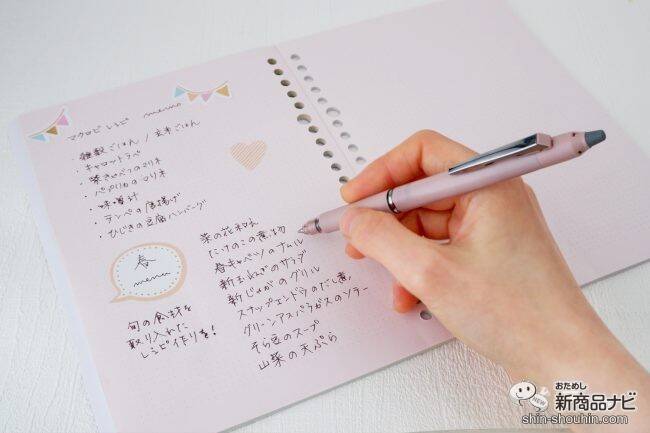 マクロビ レシピ memo
・雑穀ごはん / 玄米ごはん
・キャロットラペ
・焼きキャベツのマリネ
・パプリカのマリネ
・味噌汁
・テンペの唐揚げ
・ひじきの豆腐ハンバーグ
春
memo
旬の食材を
取り入れた
レシピ作りを!
菜の花和え
たけのこの煮物
春キャベツのナムル
新玉ねぎのサラダ
新じゃがのグリル
スナップエンドウのだし煮
グリーンアスパラガスのソテー
そら豆のスープ
山菜の天ぷら
NEW
おためし
新商品ナビ
shin-shouhin.com